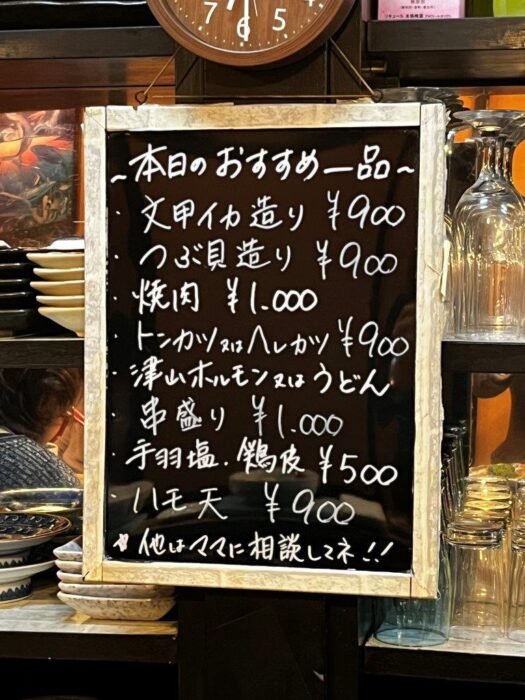 7 6 5
リキュール
~本日のおすすめ一品~
・文甲イカ造り ¥900
・つぶ貝造り ¥900
・焼肉 ¥1.000
・トンカツ又はヘレカツ ¥900
・津山ホルモン又はうどん
・串盛り ¥1.000
・手羽塩.鶏皮 ¥500
・ハモ天 ¥900
他はママに相談してネ!!